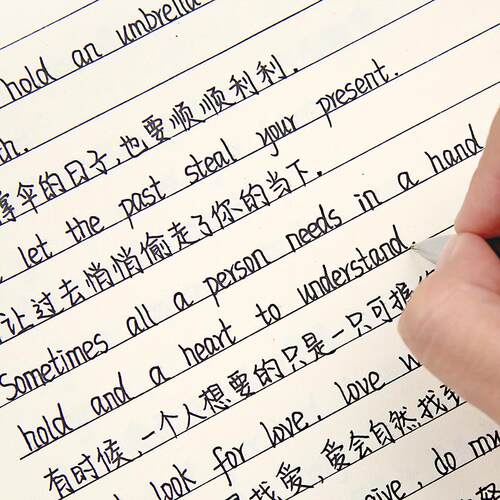 hold an umbrella
伞的日子,也要顺顺利利.
let the past steal your present.
让过去悄悄偷走了你的当下.
Sometimes all a person needs in a hand
hold and a heart to understand.
有时候,一个人想要的只是一只可握
look for love, love
找爱,爱会自然找到
do